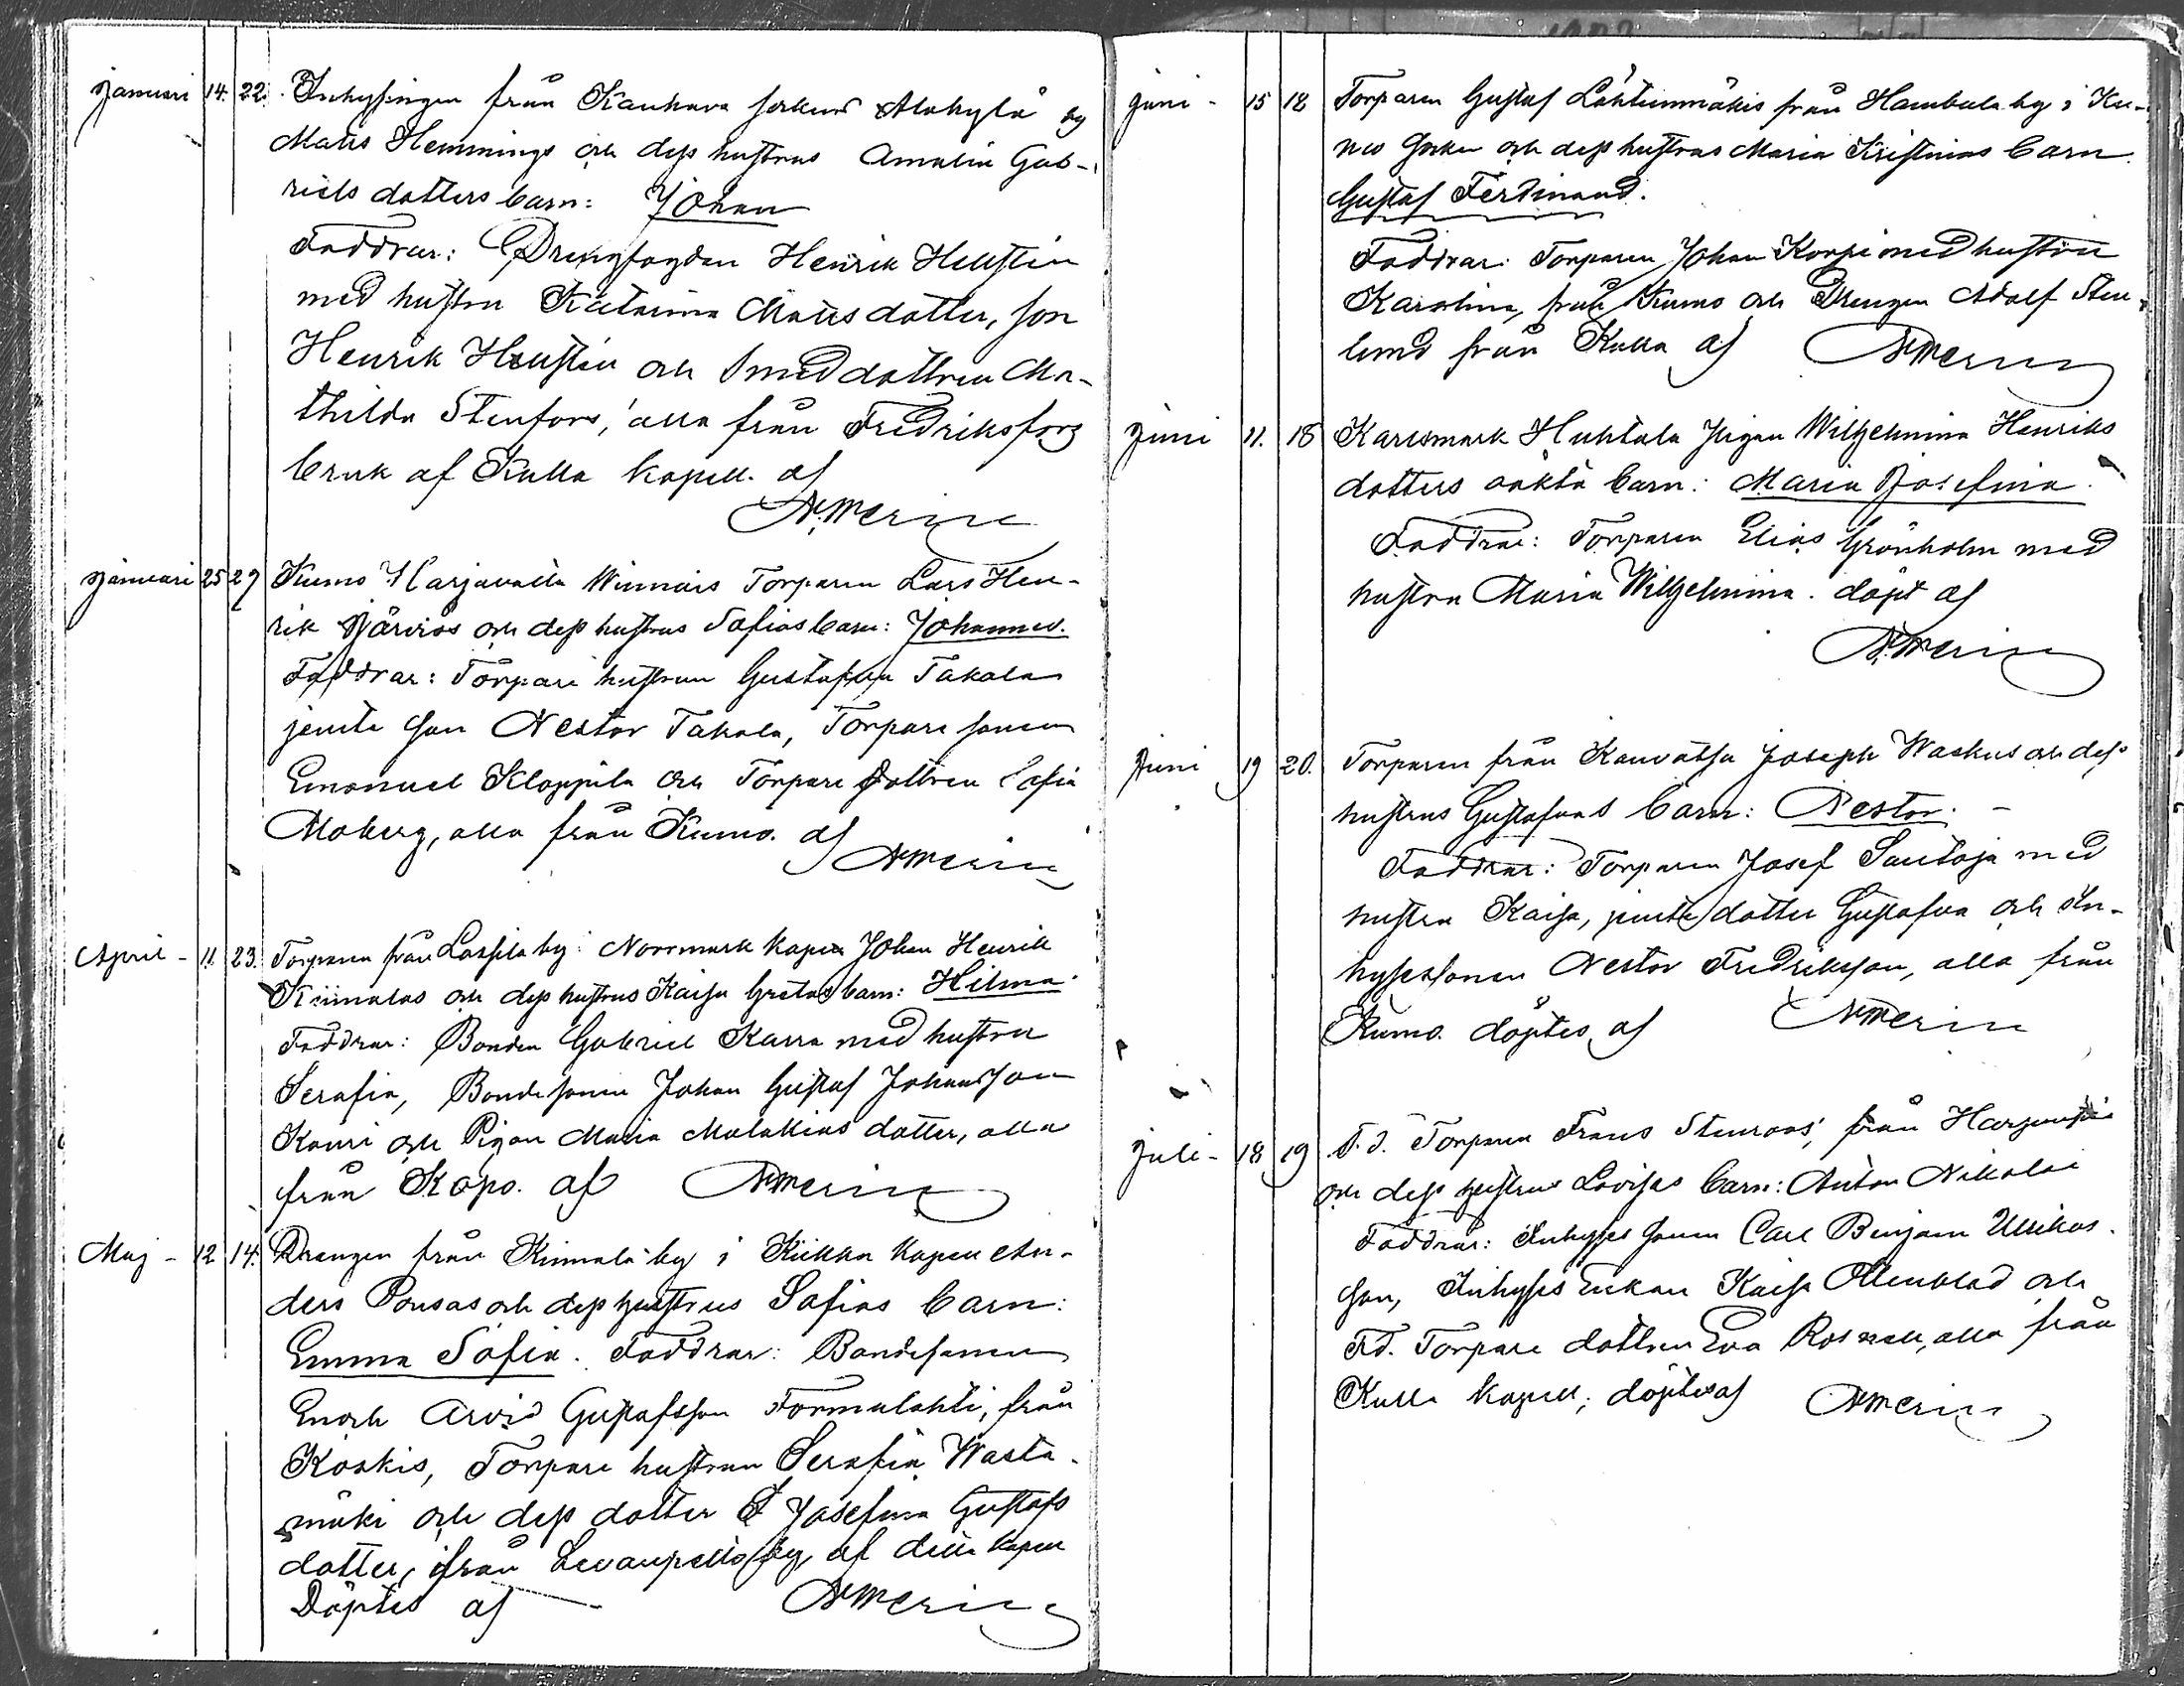 januari 14. 22. Inhysingen från Kauhava socken Alakylä by
Matts Hemmings och dess hustrus Amalia Gab-
riels dotters barn: Johan
Faddrar: Drengfogden Henrik Hellstén
med hustru Katarina Mattsdotter, son
Henrik Hellstén och smeddottren Ma-
thilda Stenfors, alla från Fredriksfors
bruk af Kulla kapell. af
A. Merin
januari 25 29 Kumo Harjavalta Winnais Torparen Lars Hen-
rik Järvis och dess hustrus Sofias barn: Johannes.
Faddrar: Torpare hustrun Gustafva Takala
jemte son Nestor Takala, Torpare sonen
Emanuel Kloppila och Torpare dottren Sofia
Moberg, alla från Kumo. af A Merin
April - 11. 23. Torparen från Lassila by i Norrmark kapell Johan Henrik
och dess hustrus Kaisa Gretas barn: Hilma
Faddrar: Bonden Gabriel Karra med hustru
Serafia, Bondesonen Johan Gustaf Johansson
Kauri och Pigan Maria Malakias dotter, alla
från af A Merin
Maj - 12 14. Drengen från Kiimala by i Kiikka kapell An-
ders Ponsas och dess hustrus Sofias barn:
Emma Sofia. Faddrar: Bondesonen
Enoch Arvid Gustafsson Tormulahti, från
Koskis, Torpare hustrun Serafia Wasta-
mäki och dess dotter Josefina Gustafs
dotter, från by, af detta kapell
Döptes af A Merin
juni - 15 18 Torparen Gustaf Lähteenmäkis från Hambula by i Ku-
mo socken och dess hustrus Maria Kristinas barn
Gustaf Ferdinand.
Faddrar: Torparen Johan Korpi med hustru
Karolina, från Kumo och Drengen Adolf Sten-
lund från Kulla af A Merin
juni 11. 18 Karlsmark Huhtala Pigan Wilhelmina Henriks
dotters oäkta barn: Maria Josefina.
Faddrar: Torparen Elias Grönholm med
hustru Maria Wilhelmina. döpt af
A. Merin
Juni 19 20. Torparen från Kauvatsa Joseph Waskus och dess
hustrus Gustafvas barn: Nestor. -
Faddrar: Torparen Josef Santoja med
hustru Kaisa, jemte dotter Gustafva och In-
hysessonen Nestor Fredriksson, alla från
Kumo. döptes af A Merin
juli - 18 19 F.d. Torparen Frans Stenroos, från
och dess hustrus Lovisas barn: Anton Nikolai
Faddrar: Inhyses sonen Carl Benjam Ulrikas-
son, Inhyses Enkan Kaisa Ollenblad och
F.d. Torpare dottren Eva Rosnell, alla från
Kulla kapell; döptes af A Merin